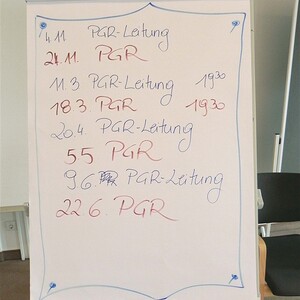 4.11 PGR-Leitung
24.11. PGR
11.3 PGR-Leitung 19 30
18 3 PGR 19 30
20.4 PGR-Leitung
5 5 PGR
9.6. PGR-Leitung
22 6. PGR